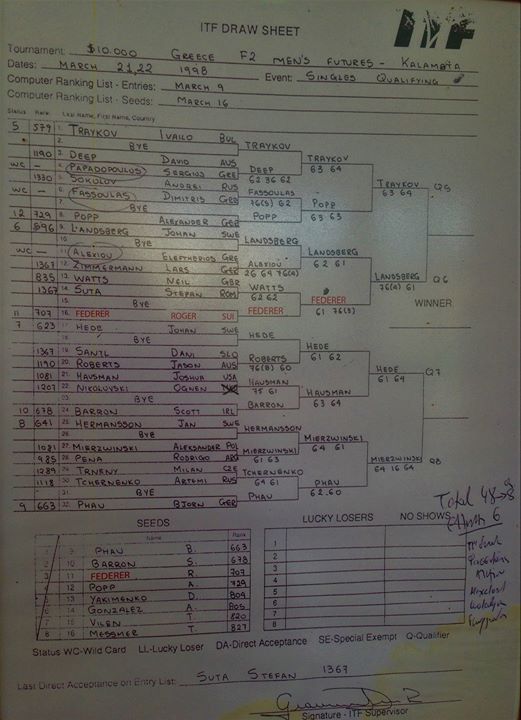 ITF DRAW SHEET
ITF
Tournament: $10.000 GREECE F2 MEN'S FUTURES - KALAMATA
Dates: MARCH 21,22 1998 Event: SINGLES QUALIFYING
Computer Ranking List - Entries: MARCH 9
Computer Ranking List - Seeds: MARCH 16
Status Rank Last Name, First Name, Country
5 579 1. TRAYKOV IVAILO BUL
2. BYE TRAYKOV
1190 3. DEEP DAVID AUS TRAYKOV
WC - 4. PAPADOPOULOS SERGIOS GRE DEEP 63 64
1330 5. SOKOLOV ANDREI RUS 62 36 62 TRAYKOV Q5
WC - 6. FASSOULAS DIMITRIS GRE FASSOULAS 63 64
7. BYE 76(5) 62 POPP
12 729 8. POPP ALEXANDER GER POPP 63 63
6 596 9. LANDSBERG JOHAN SWE
10. BYE LANDSBERG
WC - 11. ALEXIOU ELEFTHERIOS GRE LANDSBERG
1367 12. ZIMMERMANN LARS GER ALEXIOU 62 61
835 13. WATTS NEIL GBR 26 64 76(4) LANDSBERG Q6
1367 14. SUTA STEFAN ROM WATTS 76(4) 61
15. BYE 62 62 FEDERER WINNER
11 707 16. FEDERER ROGER SUI FEDERER 61 76(3)
7 623 17. HEDE JOHAN SWE
18. BYE HEDE
1367 19. SANTL DANI SLO HEDE
1190 20. ROBERTS JASON AUS ROBERTS 61 62
1081 21. HAUSMAN JOSHUA USA 76(8) 60 HEDE Q7
1207 22. NIKOLOVSKI OGNEN HAUSMAN 61 64
23. BYE 75 61 HAUSMAN
10 678 24. BARRON SCOTT IRL BARRON 63 64
8 641 25. HERMANSSON JAN SWE
26. BYE HERMANSSON
1081 27. MIERZWINSKI ALEKSANDER POL MIERZWINSKI
985 28. PENA RODRIGO ARG MIERZWINSKI 64 61
1289 29. TRNENY MILAN CZE 61 63 MIERZWINSKI Q8
1118 30. TCHERNENKO ARTEMI RUS TCHERNENKO 64 16 64
31. BYE 64 61 PHAU
9 663 32. PHAU BJORN GER PHAU 62.60
Total 48→8
SEEDS
LUCKY LOSERS NO SHOWS
Name Rank
9 PHAU B. 663
10 BARRON S. 678
11 FEDERER R. 707
12 POPP A. 729
13 YAKIMENKO D. 804
14 GONZALEZ A. 805
15 VILEN T. 820
16 MESSMER T. 827
1
2
3
4
5
6
7
8
Status WC-Wild Card LL-Lucky Loser DA-Direct Acceptance SE-Special Exempt Q-Qualifier
Last Direct Acceptance on Entry List: SUTA STEFAN 1367
Signature - ITF Supervisor